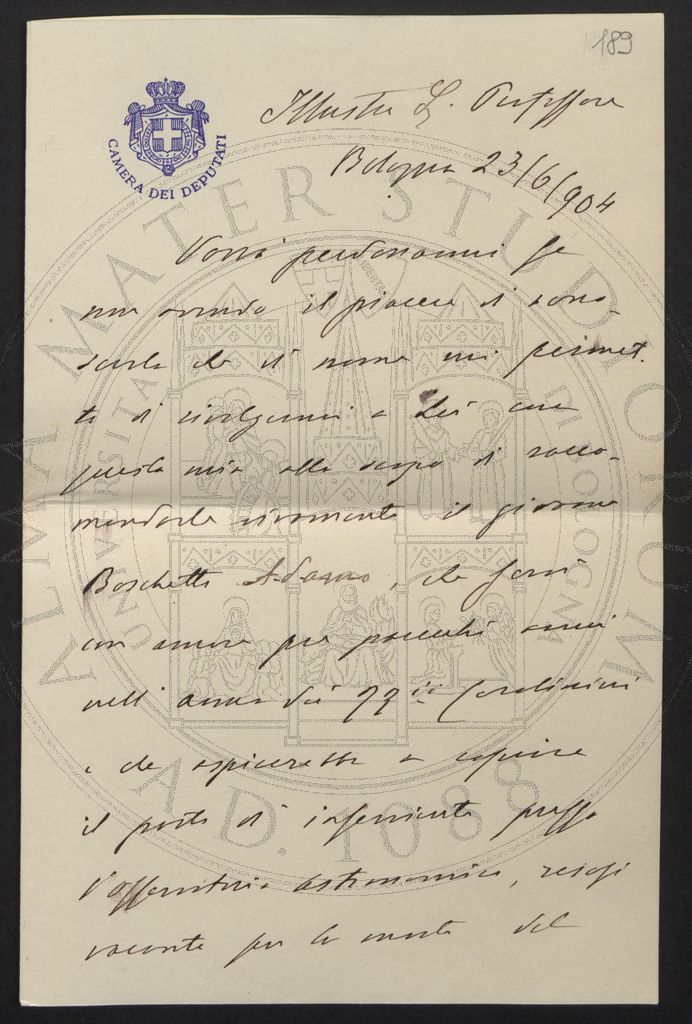 189
CAMERA DEI DEPUTATI
Illustre Sig. Professore
Bologna 23/6/904
Vorrà perdonarmi se
non avendo il piacere di cono-
scerla che di nome mi permet-
to di rivolgermi a Lei con
questa mia allo scopo di racco-
mandarle vivamente il giovane
Boschetti Adamo, che servì
con amore per parecchi anni
nell'arma dei RR.ii Carabinieri
e che aspirerebbe a coprire
il posto di inserviente presso
l'osservatorio astronomico, resosi
vacante per la morte del
ALMA MATER STUDIORUM
UNIVERSITA DI BOLOGNA
A.D. 1088